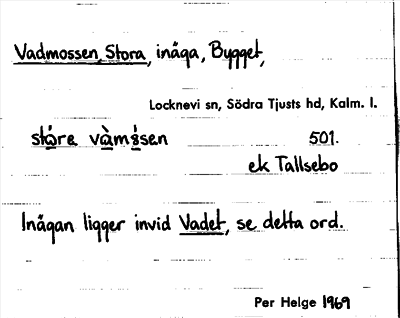 Vadmossen, Stora, inäga, Bygget,
Locknevi sn, Södra Tjusts hd, Kalm. l.
stó̲re và̲mó̲sen 501.
ek Tallsebo
Inägan ligger invid Vadet, se detta ord.
Per Helge 1969